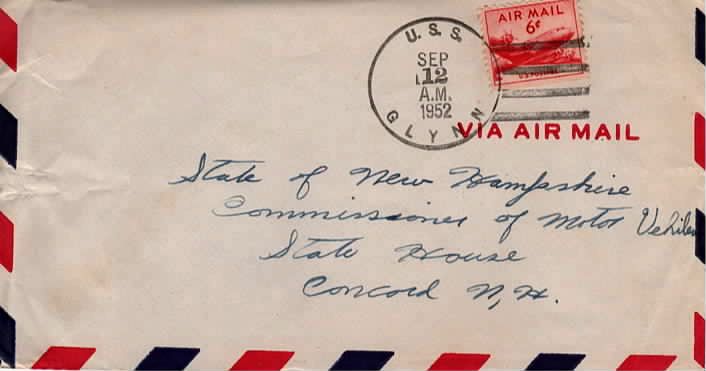 U. S. S.
SEP
12
A.M.
1952
GLYNN
AIR MAIL
6¢
U.S. POSTAGE
VIA AIR MAIL
State of New Hampshire
Commissioner of Motor Vehiles
State House
Concord N, H.